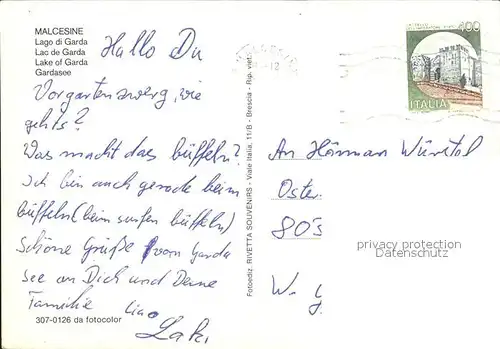 MALCESINE
Lago di Garda
Lac de Garda
Lake of Garda
Gardasee
Hallo Du
Vorgartenzwerg, wie
gehts?
Was macht das büffeln?
Ich bin auch gerade beim
büffeln (beim surfen büffeln)
Schöne Grüße vom Garda
see an Dich und Deine
Familie Ciao
307-0126 da fotocolor
Fotoediz. RIVETTA SOUVENIRS - Viale Italia, 11/B - Brescia - Rip. viet.
400
ITALIA
An Hörman
Oster
80
privacy protection
Datenschutz
W.